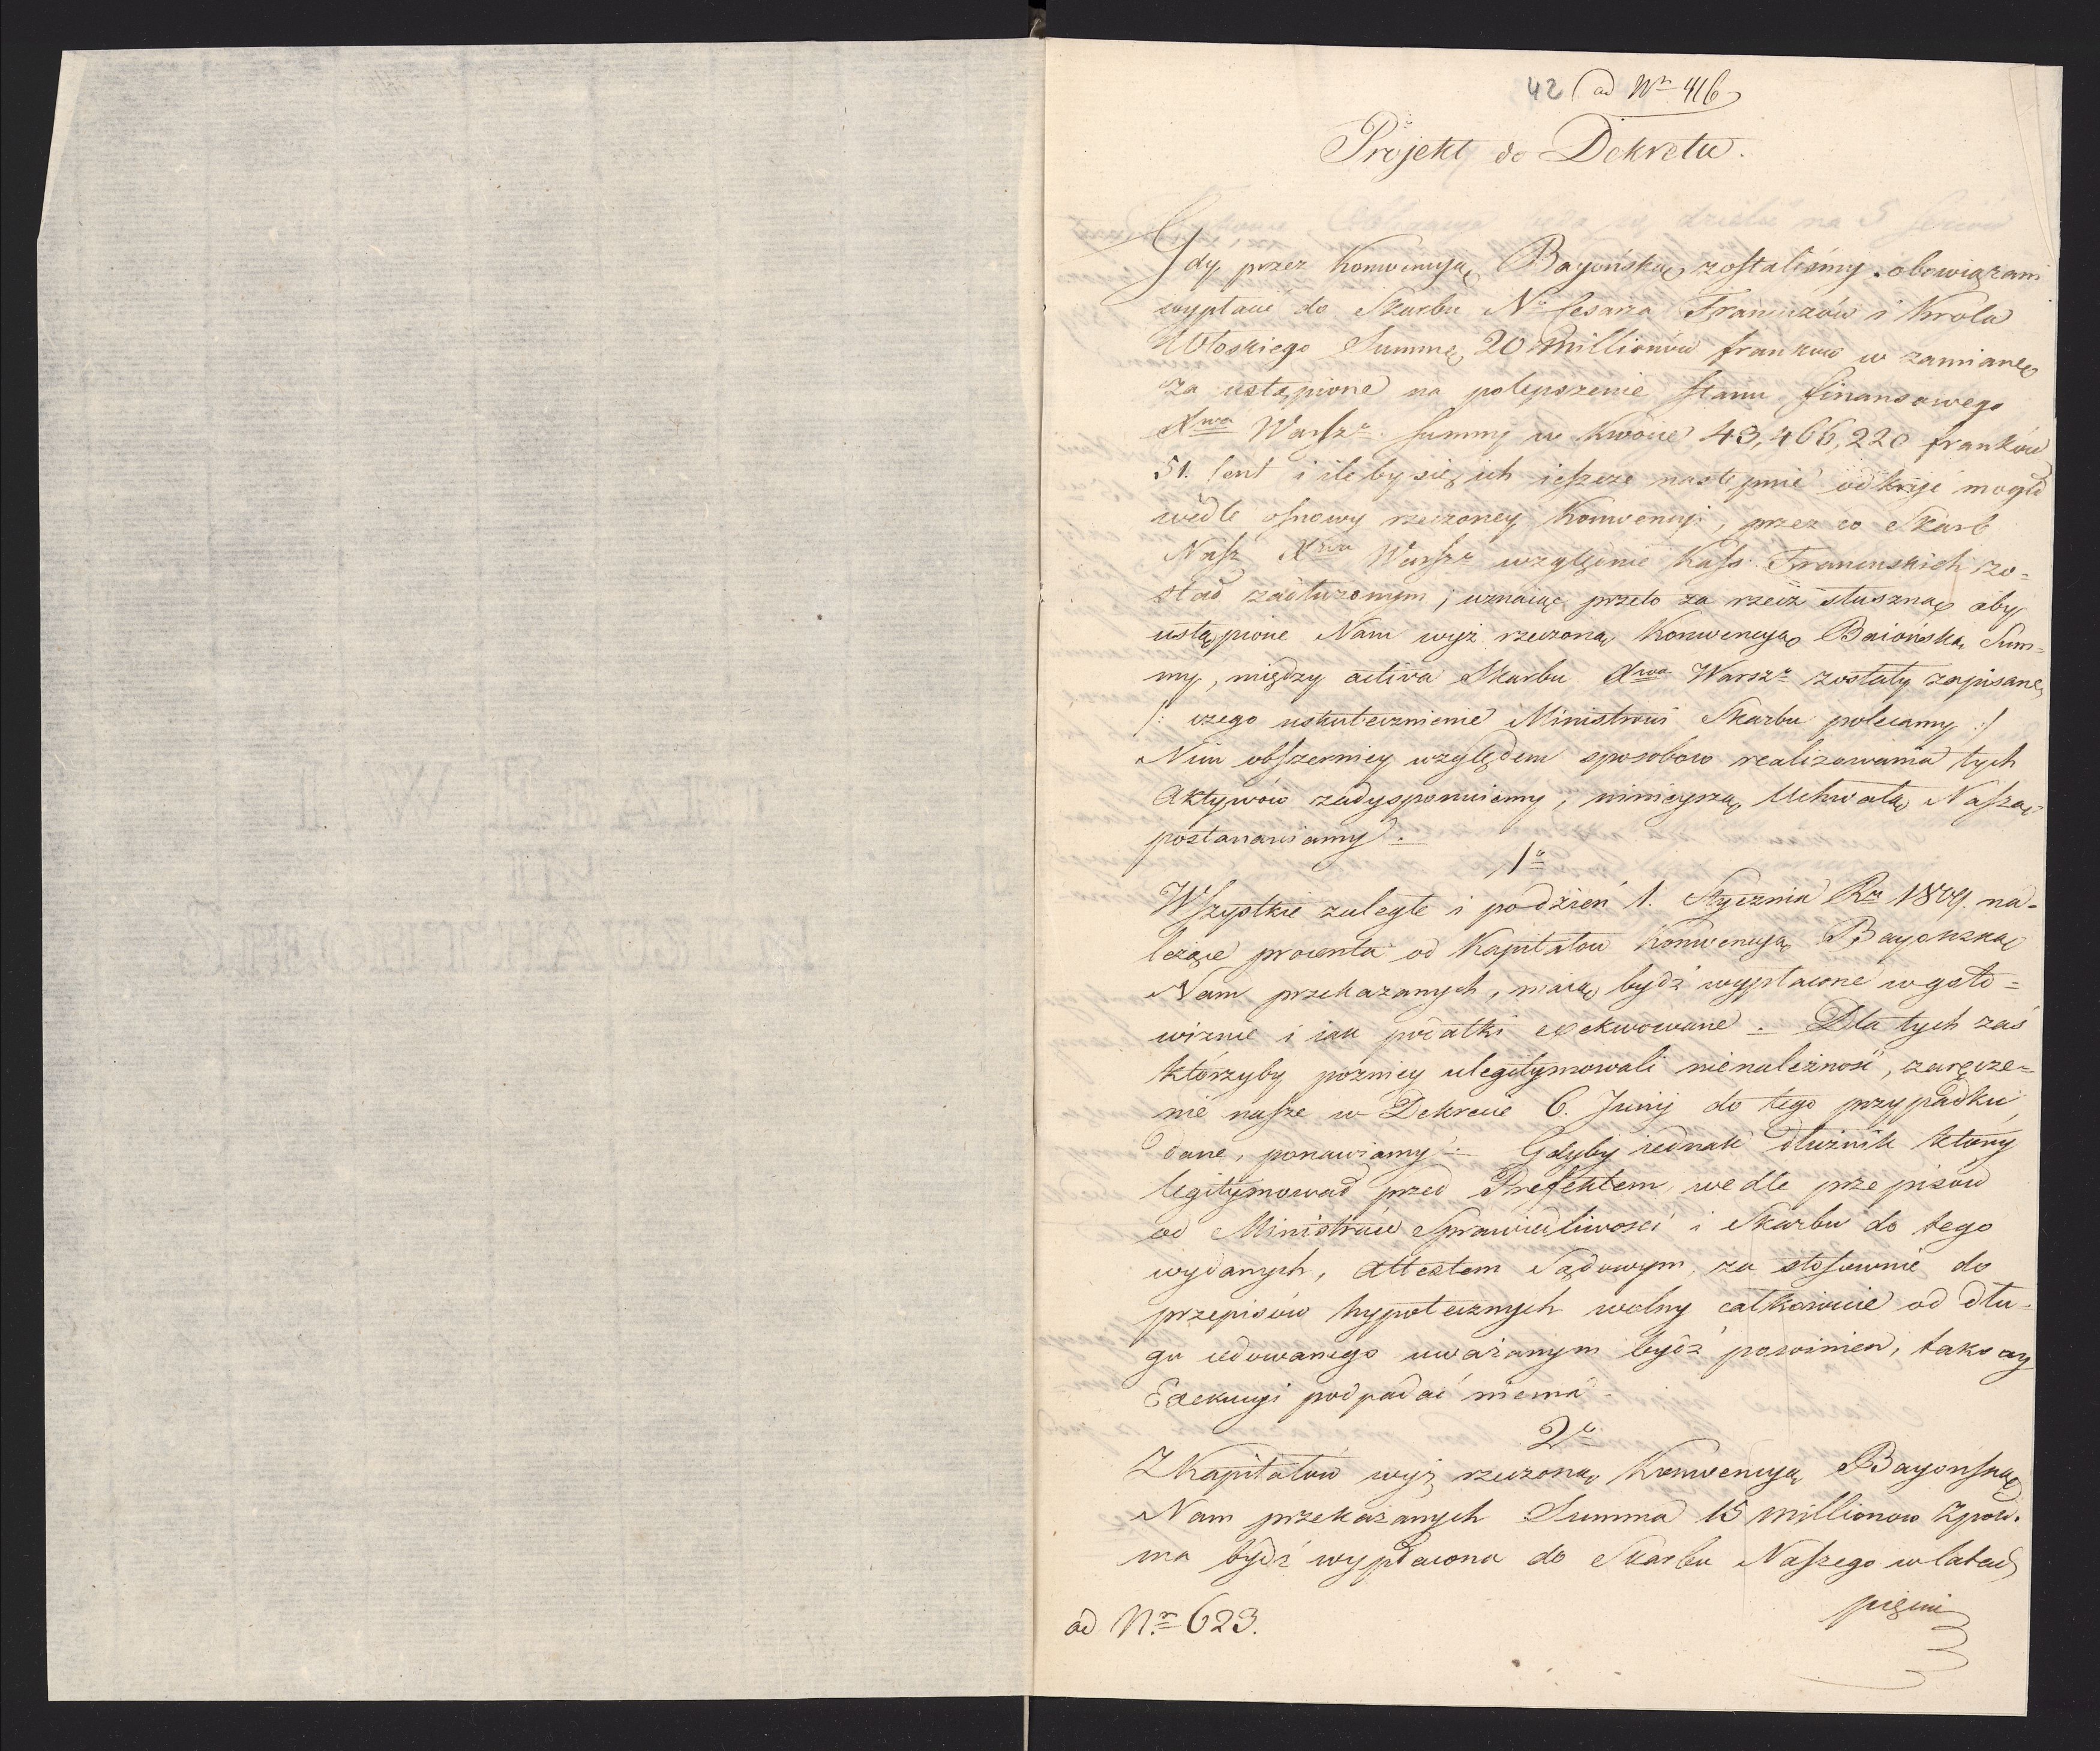 42 ad Nr 416
Projekt do Dekretu.
Gdy przez Konwencyą Bayońską zostaliśmy obowiązani
wypłacić do Skarbu Nº Cesarza Francuzów i Króla
Włoskiego Summę 20 Millionów franków w zamianę
za ustąpione na polepszenie stanu finansowego
Xwa Warsz. summy w kwocie 43,466,220 franków
51. Cent i ileby się ich ieszcze następnie odkryć mogło
wedle osnowy rzeczoney Konwencyi, przez co Skarb
Nasz Xwa Warsz. względnie Kass Francuskich zo=
stał zadłużonym; uznaiąc przeto za rzecz słuszną aby
ustąpione Nam wyż rzeczoną Konwencyą Baiońską Sum=
my, między activa Skarbu Xwa Warsz. zostały zapisane,
/: czego uskutecznienie Ministrowi Skarbu polecamy :/
Nim obszerniey względem sposobow realizowania tych
Aktywów zadysponuiemy, ninieyszą Uchwałą Naszą
postanawiamy.
1o
Wszystkie zaległe i podzień 1. Stycznia Rm 1809. na=
leżące procenta od Kapitałów Konwencyą Bayonską
Nam przekazanych, maią bydź wypłacone w goto=
wiznie i iak podatki exekwowane. Dla tych zaś
którzyby pózniey ulegitymowali nienależność, zaręcze=
nie nasze w Dekrecie 6. Junij do tego przypadku
dane, ponawiamy. Gdyby iednak dłużnik który
legitymował przed Prefektem, wedle przepisów
od Ministrów Sprawiedliwości i Skarbu do tego
wydanych, Attestem Sądowym, za stosownie do
przepisów hypotecznych wolny całkowicie od dłu=
gu cedowanego uważanym bydź powinien, takowy
Exekucyi podpadać niema.
2o
Z Kapitałów wyż rzeczoną Konwencyą Bayonską
Nam przekazanych Summa 15 millionow
ma bydź wypłacona do Skarbu Naszego w latach
pięciu
ad Nr 623.